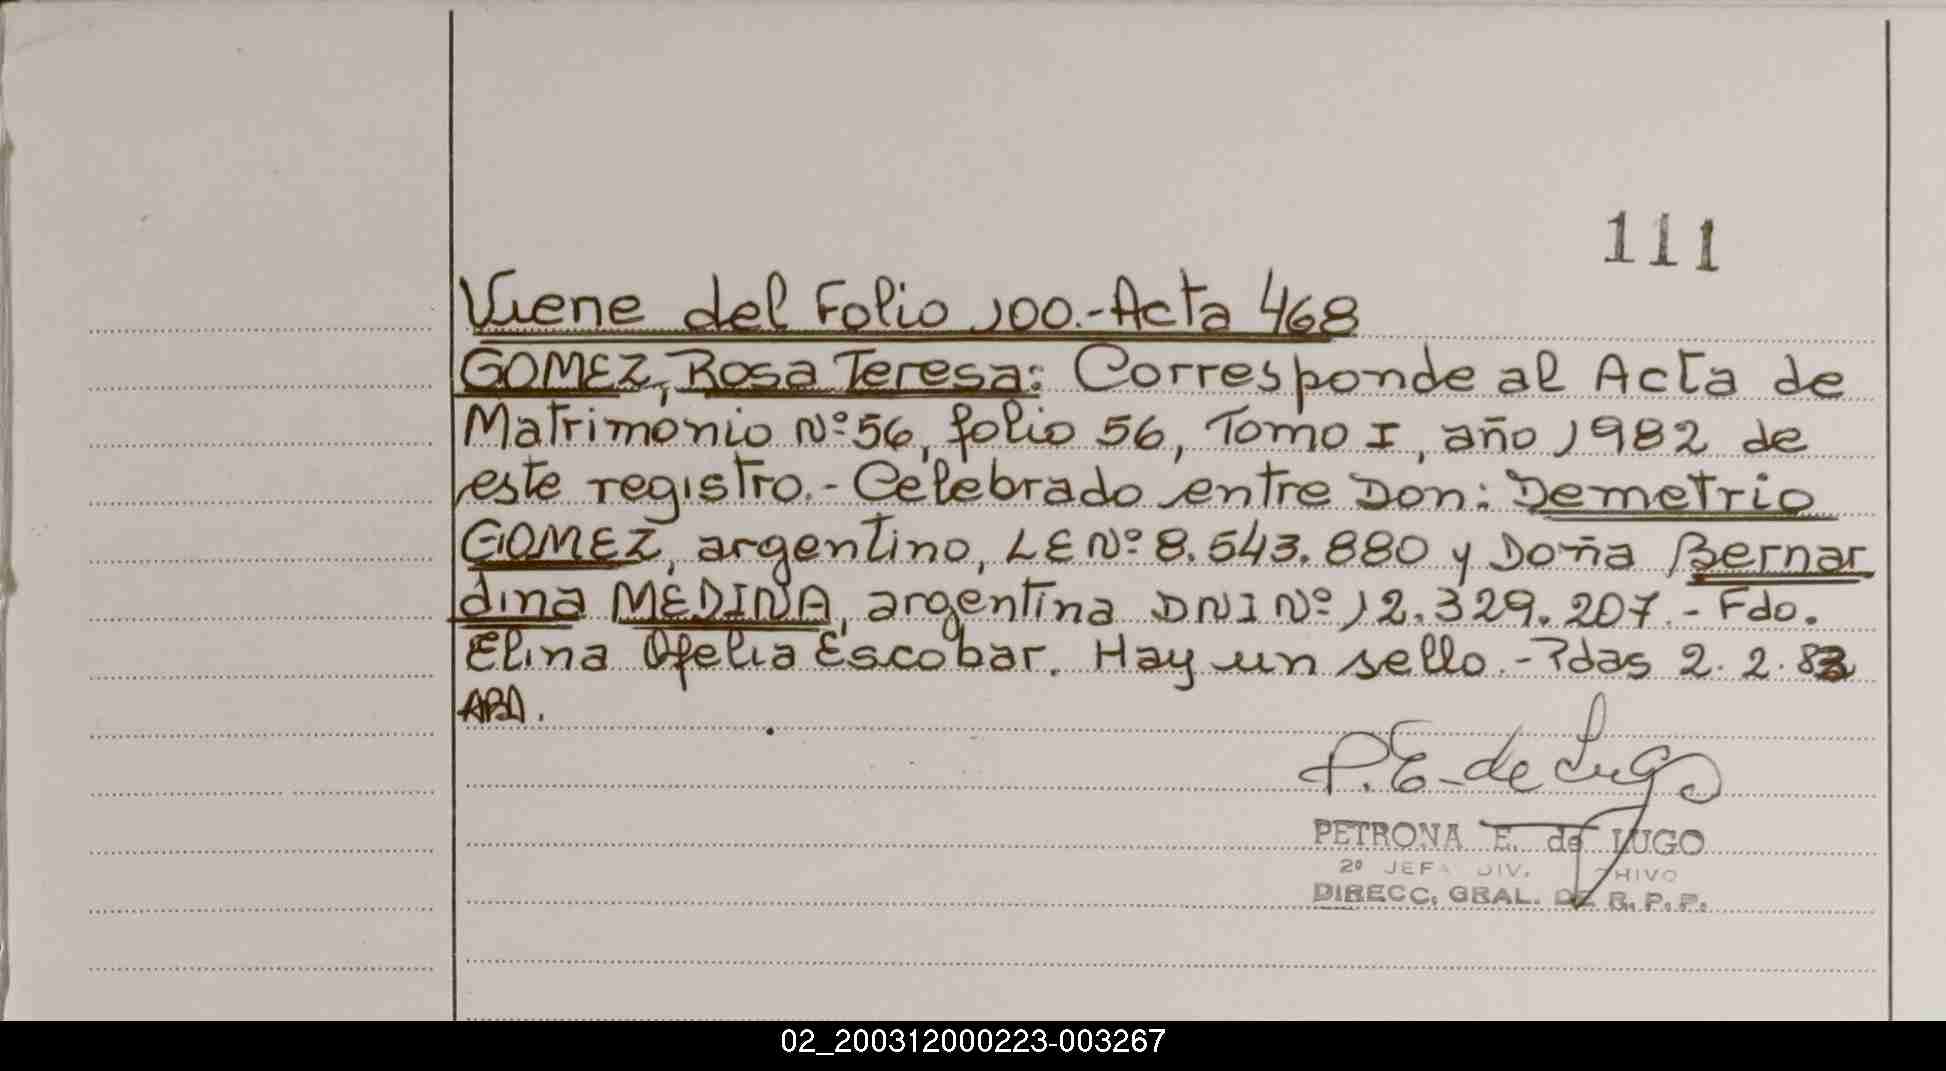 111
Viene del Folio 100.-Acta 468
GOMEZ, Rosa Teresa: Corresponde al Acta de
Matrimonio Nº 56, folio 56, Tomo I, año 1982 de
este registro.- Celebrado entre Don: Demetrio
GOMEZ, argentino, LE Nº 8.543.880 y Doña Bernar
dina MEDINA, argentina DNI Nº 12.329.207.- Fdo.
Elina Ofelia Escobar. Hay un sello.- Pdas 2.2.83
P.E. de Lugo
PETRONA E. de LUGO
2º JEFA DIV.
DIRECC. GRAL. DE R. P. P.
02_200312000223-003267